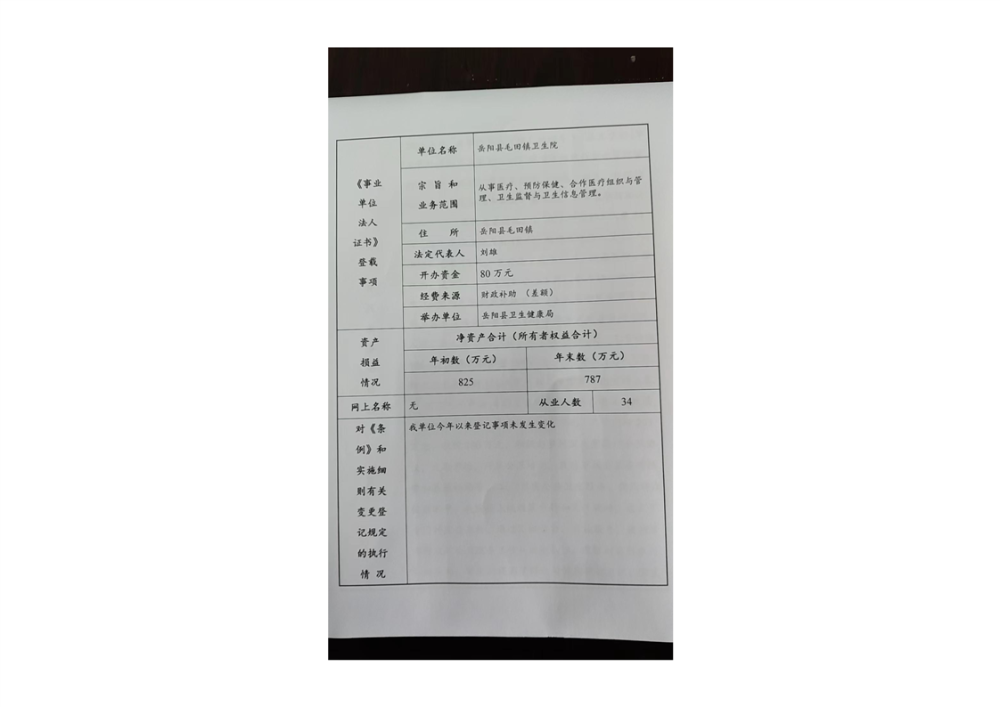 《事业
单位
法人
证书》
登载
事项
单位名称
岳阳县毛田镇卫生院
宗 旨 和
业务范围
从事医疗、预防保健、合作医疗组织与管
理、卫生监督与卫生信息管理。
住 所
岳阳县毛田镇
法定代表人
刘雄
开办资金
80 万元
经费来源
财政补助 （差额）
举办单位
岳阳县卫生健康局
资产
损益
情况
净资产合计（所有者权益合计）
年初数（万元）
年末数（万元）
825
787
网上名称
无
从业人数
34
对《条
例》和
实施细
则有关
变更登
记规定
的执行
情 况
我单位今年以来登记事项未发生变化